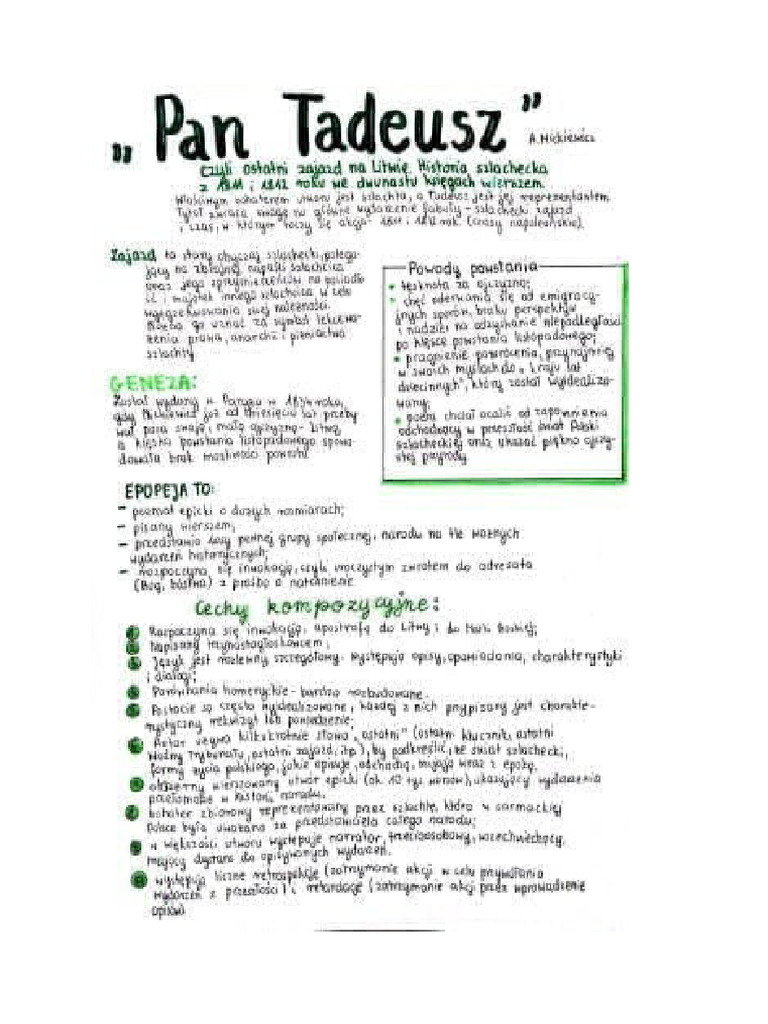 „Pan Tadeusz"
A. Mickiewicz
czyli ostatni zajazd na Litwie. Historia szlachecka
z 1811 i 1812 roku we dwunastu księgach wierszem.
Właściwym bohaterem utworu jest szlachta, a Tadeusz jest jej reprezentantem.
Tytuł zwraca uwagę na główne wydarzenie fabuły - szlachecki zajazd
i czas, w którym toczy się akcja - 1811 i 1812 rok (czasy napoleońskie).
Zajazd to stary obyczaj szlachecki, polega-
jący na zbrojnej napaści szlachcica
oraz jego sprzymierzeńców na posiadło
ść i majątek innego szlachcica w celu
wyegzekwowania swej należności.
Można go uznać za symbol lekcewa-
żenia prawa, anarchii i pieniactwa
szlachty
Powody powstania
• tęsknota za ojczyzną;
• chęć oderwania się od emigracy-
jnych sporów, braku perspektyw
i nadziei na odzyskanie niepodległości
po klęsce powstania listopadowego;
• pragnienie powrócenia, przynajmniej
w swoich myślach do „kraju lat
dziecinnych", który został wyidealizo-
wany;
• poeta chciał ocalić od zapomnienia
odchodzący w przeszłość świat Polski
szlacheckiej oraz ukazać piękno ojczy-
stej przyrody
GENEZA:
Został wydany w Paryżu w 1834 roku,
gdy Mickiewicz już od dziesięciu lat przeby
wał poza swoją małą ojczyzną - Litwą
a klęska powstania listopadowego spowo-
dowała brak możliwości powrotu
EPOPEJA TO:
- poemat epicki o dużych rozmiarach;
- pisany wierszem;
- przedstawia losy pewnej grupy społecznej, narodu na tle ważnych
wydarzeń historycznych;
- rozpoczyna się inwokacją, czyli uroczystym zwrotem do adresata
(Bóg, bóstwa) z prośbą o natchnienie
Cechy kompozycyjne:
Rozpoczyna się inwokacją, apostrofą do Litwy i do Matki Boskiej;
Napisany trzynastozgłoskowcem;
Język jest rozlewny szczegółowy. Występują opisy, opowiadania, charakterystyki
i dialogi;
Porównania homeryckie - bardzo rozbudowane.
Postacie są często wyidealizowane, każdej z nich przypisany jest charakte-
rystyczny rekwizyt lub powiedzenie;
Autor używa kilkukrotnie słowa „ostatni" (ostatni klucznik, ostatni
Woźny Trybunału, ostatni zajazd, itp.), by podkreślić, że świat szlachecki,
formy życia polskiego, jakie opisuje, odchodzą, mijają wraz z epoką.
obszerny wierszowany utwór epicki (ok. 10 tys. wersów), ukazujący wydarzenia
przełomowe w historii narodu.
bohater zbiorowy reprezentowany przez szlachtę, która w sarmackiej
Polsce była uważana za przedstawiciela całego narodu;
w większości utworu występuje narrator, trzecioosobowy, wszechwiedzący,
mający dystans do opisywanych wydarzeń.
występują liczne retrospekcje (zatrzymanie akcji w celu przywołania
wydarzeń z przeszłości) i retardacje (zatrzymanie akcji przez wprowadzenie
opisów)